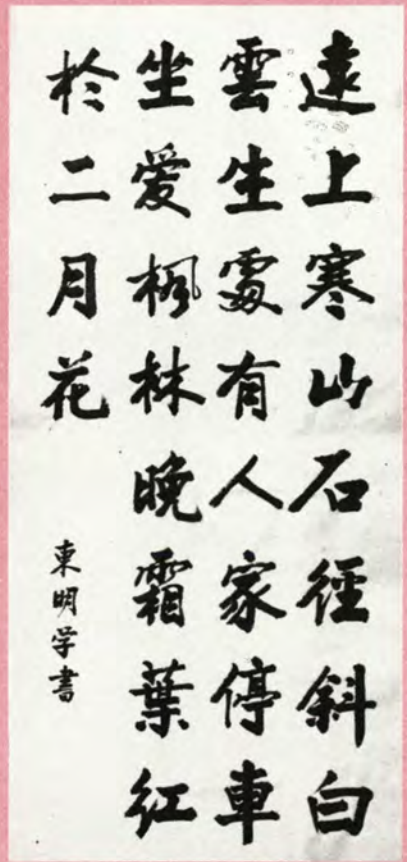 遠上寒山石徑斜白
雲生處有人家停車
坐爱楓林晚霜葉紅
於二月花
東明学書